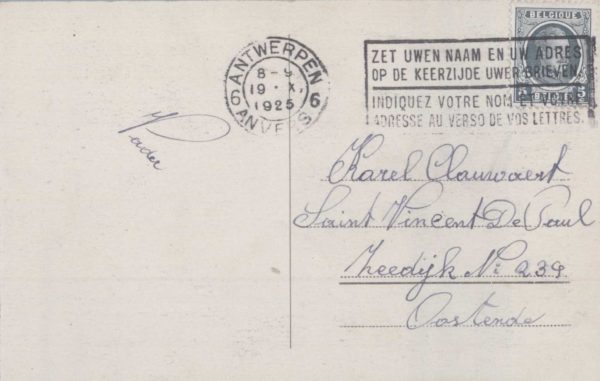 BELGIQUE
BELGIË
ANTWERPEN
8-9
19 · X.
1925
6 ANVERS 6
ZET UWEN NAAM EN UW ADRES
OP DE KEERZIJDE UWER BRIEVEN.
INDIQUEZ VOTRE NOM ET VOTRE
ADRESSE AU VERSO DE VOS LETTRES.
Vader
Karel Clauwaert
Saint Vincent De Paul
Zeedijk No 239
Oostende